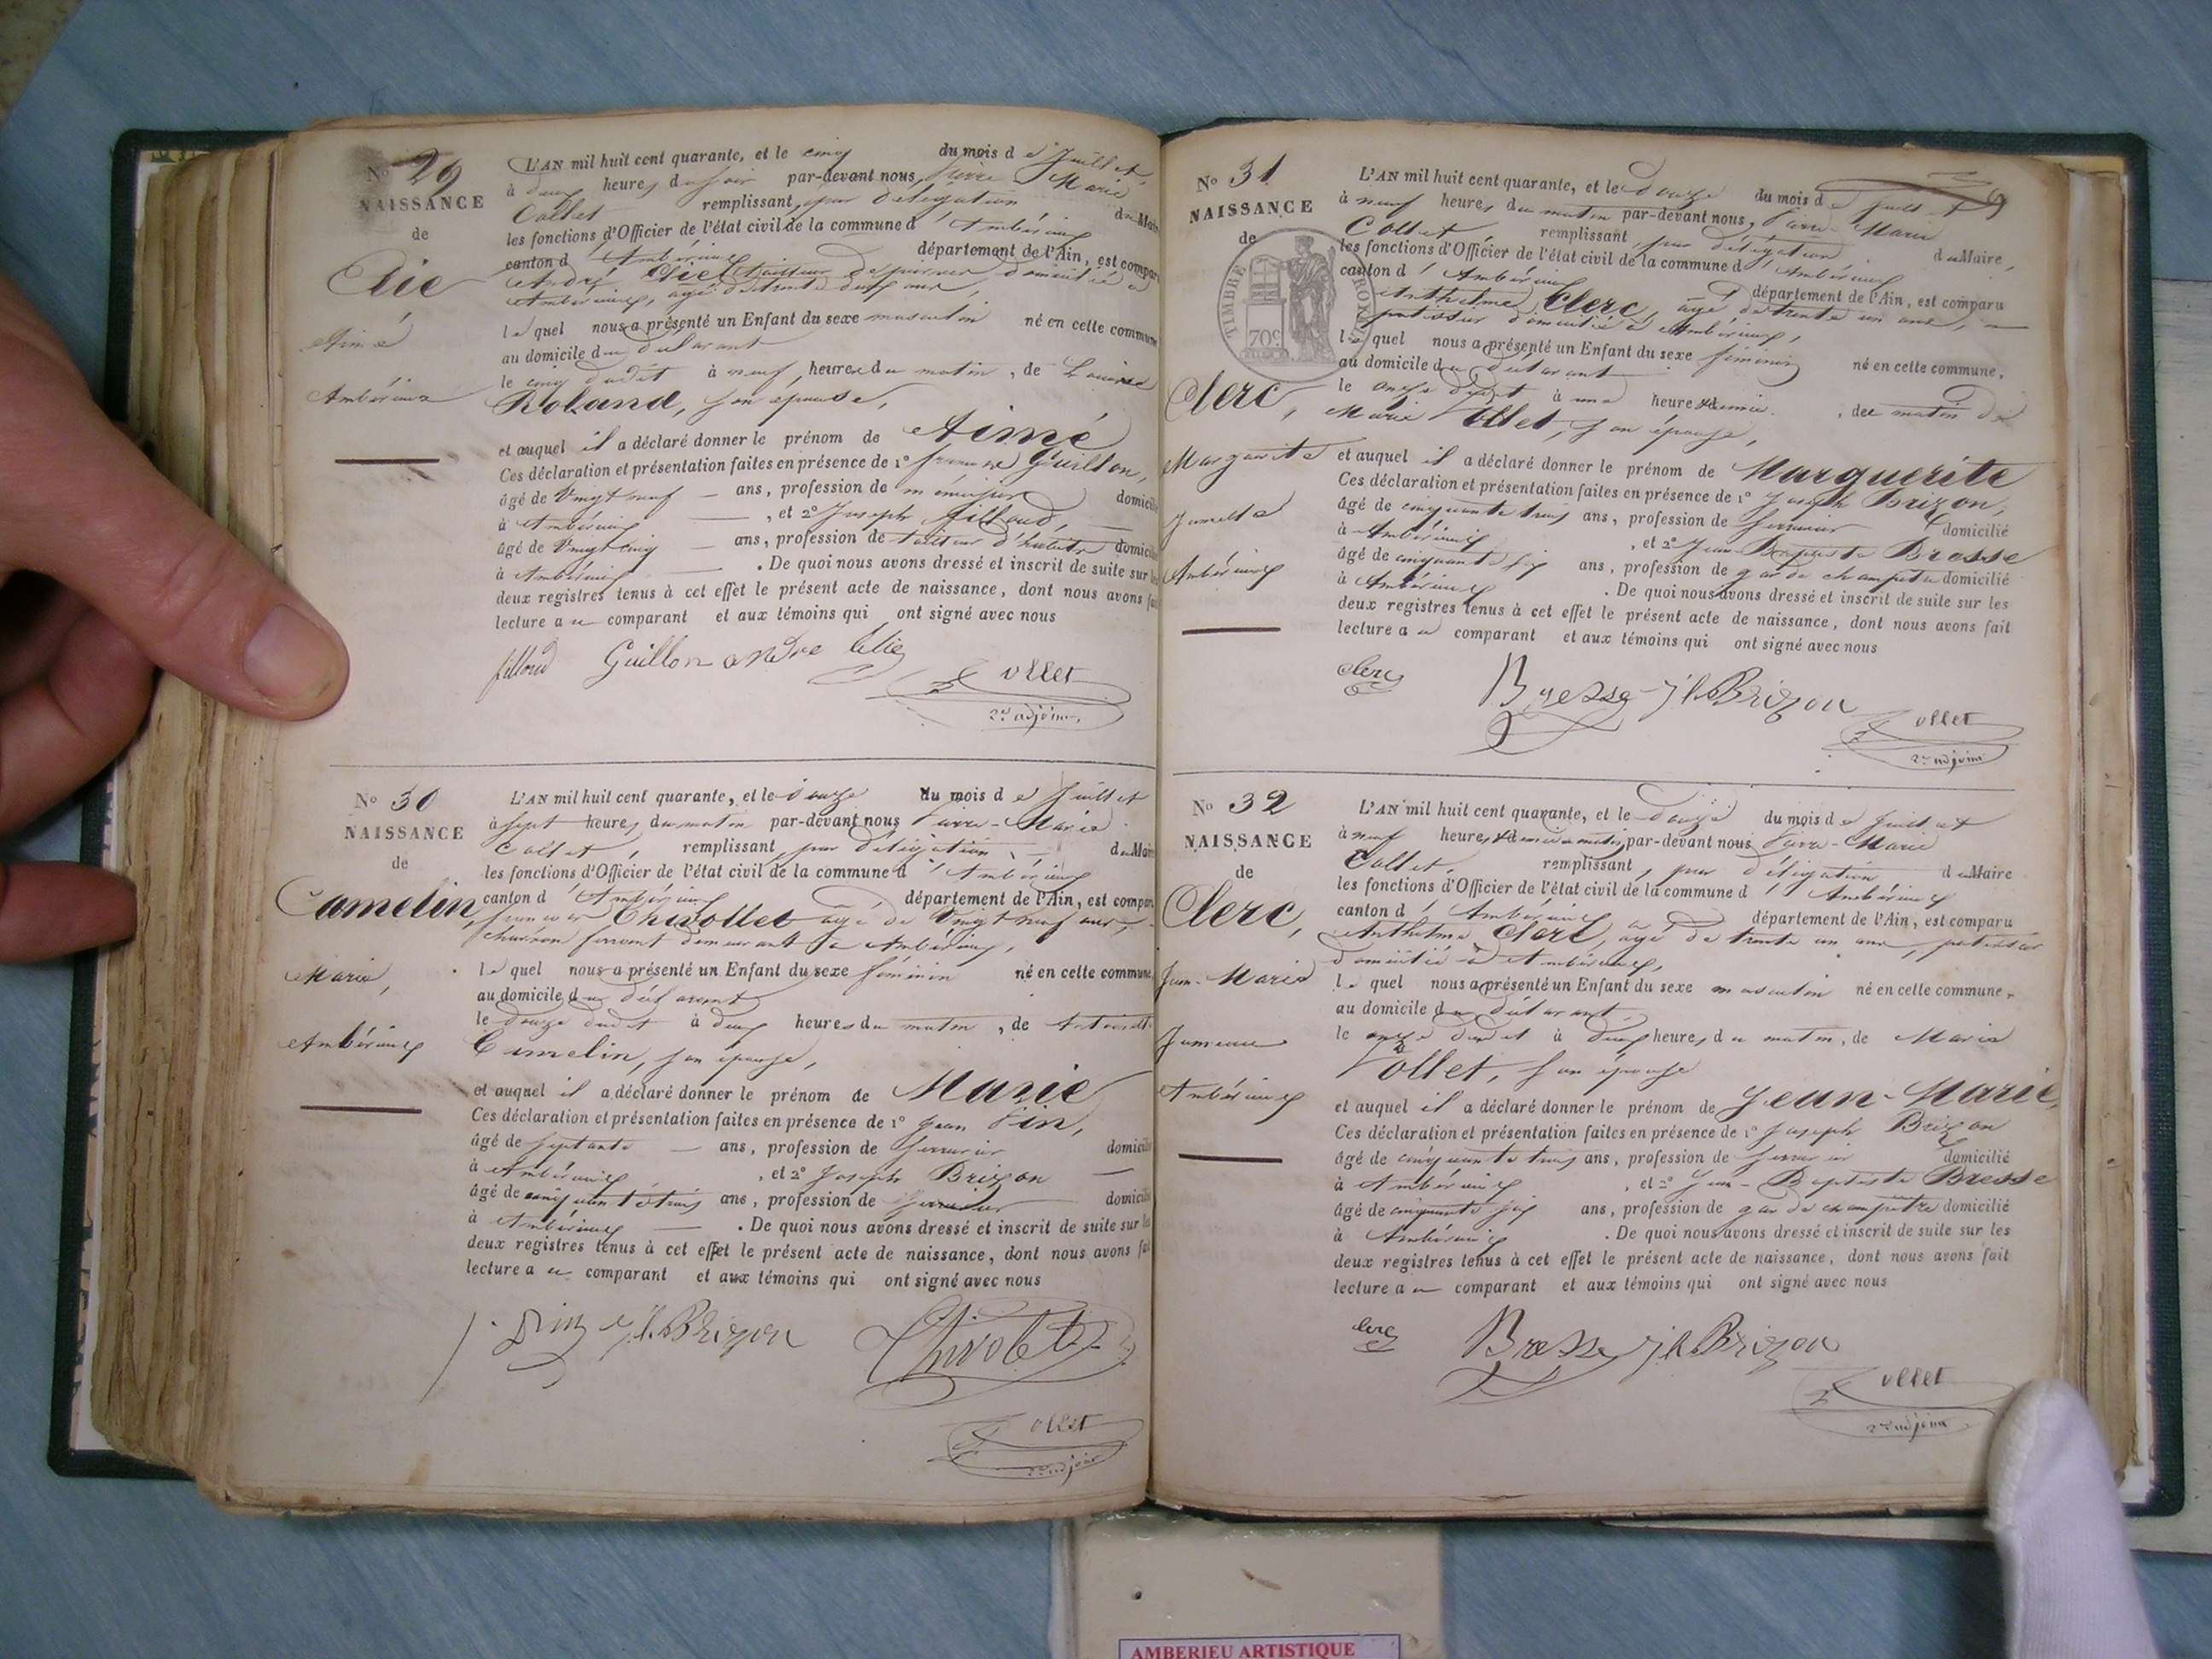 No 29
NAISSANCE
de
Elie
Aimé
Ambérieux
L'AN mil huit cent quarante, et le cinq du mois de Juillet
à deux heures du soir par-devant nous, Pierre Marie
Collet remplissant, par délégation du Maire
les fonctions d'Officier de l'état civil de la commune d'Ambérieux
canton d'Ambérieux département de l'Ain, est comparu
André domicilié à
Ambérieux, âgé de trente deux ans,
lequel nous a présenté un Enfant du sexe masculin né en cette commune
au domicile du déclarant
le cinq dudit à neuf heures du matin, de Louise
Roland, son épouse,
et auquel il a déclaré donner le prénom de Aimé
Ces déclaration et présentation faites en présence de 1° Guillon,
âgé de Vingt neuf ans, profession de menuisier domicilié
à Ambérieux, et 2° Joseph Filloud,
âgé de Vingt cinq ans, profession de tailleur d'habits domicilié
à Ambérieux. De quoi nous avons dressé et inscrit de suite sur les
deux registres tenus à cet effet le présent acte de naissance, dont nous avons fait
lecture au comparant et aux témoins qui ont signé avec nous
filloud Guillon andre Elie
Collet
2e adjoint
No 30
NAISSANCE
de
Camelin,
Marie,
Ambérieux
L'AN mil huit cent quarante, et le douze du mois de Juillet
à sept heures du matin par-devant nous Pierre-Marie
Collet, remplissant, par délégation du Maire
les fonctions d'Officier de l'état civil de la commune d'Ambérieux
canton d'Ambérieux département de l'Ain, est comparu
Chivollet âgé de Vingt neuf ans,
demeurant à Ambérieux,
lequel nous a présenté un Enfant du sexe féminin né en cette commune
au domicile du déclarant
le douze dudit à deux heures du matin, de
Camelin, son épouse,
et auquel il a déclaré donner le prénom de Marie
Ces déclaration et présentation faites en présence de 1° Jean Pin,
âgé de septante ans, profession de serrurier domicilié
à Ambérieux, et 2° Joseph Brizon
âgé de cinquante trois ans, profession de serrurier domicilié
à Ambérieux. De quoi nous avons dressé et inscrit de suite sur les
deux registres tenus à cet effet le présent acte de naissance, dont nous avons fait
lecture au comparant et aux témoins qui ont signé avec nous
jh Brizon Chivolet
Collet
2e adjoint
No 31
NAISSANCE
de
TIMBRE ROYAL
70c
Clerc,
Margarite
Jumelle
Ambérieux
L'AN mil huit cent quarante, et le douze du mois de Juillet
à neuf heures du matin par-devant nous, Pierre-Marie
Collet remplissant, par délégation du Maire,
les fonctions d'Officier de l'état civil de la commune d'Ambérieux
canton d'Ambérieux département de l'Ain, est comparu
Anthelme Clerc, âgé de trente un ans,
patissier domicilié à Ambérieux,
lequel nous a présenté un Enfant du sexe féminin né en cette commune,
au domicile du déclarant
le onze dudit à une heure demie, du matin de
Marie Vollet, son épouse,
et auquel il a déclaré donner le prénom de Marguerite
Ces déclaration et présentation faites en présence de 1° Joseph Brizon,
âgé de cinquante trois ans, profession de serrurier domicilié
à Ambérieux, et 2° Jean-Baptiste Bresse
âgé de cinquante six ans, profession de garde champetre domicilié
à Ambérieux. De quoi nous avons dressé et inscrit de suite sur les
deux registres tenus à cet effet le présent acte de naissance, dont nous avons fait
lecture au comparant et aux témoins qui ont signé avec nous
Clerc Bresse jh Brizon
Collet
2e adjoint
No 32
NAISSANCE
de
Clerc,
Jean-Marie
Jumeau
Ambérieux
L'AN mil huit cent quarante, et le douze du mois de Juillet
à neuf heures demie du matin, par-devant nous Pierre-Marie
Collet, remplissant, par délégation du Maire
les fonctions d'Officier de l'état civil de la commune d'Ambérieux
canton d'Ambérieux département de l'Ain, est comparu
Anthelme Clerc, âgé de trente un ans, patissier
domicilié à Ambérieux,
lequel nous a présenté un Enfant du sexe masculin né en cette commune,
au domicile du déclarant,
le onze dudit à deux heures du matin, de Marie
Vollet, son épouse
et auquel il a déclaré donner le prénom de Jean-Marie,
Ces déclaration et présentation faites en présence de 1° Joseph Brizon
âgé de cinquante trois ans, profession de serrurier domicilié
à Ambérieux, et 2° Jean-Baptiste Bresse
âgé de cinquante six ans, profession de garde champetre domicilié
à Ambérieux. De quoi nous avons dressé et inscrit de suite sur les
deux registres tenus à cet effet le présent acte de naissance, dont nous avons fait
lecture au comparant et aux témoins qui ont signé avec nous
Clerc Bresse jh Brizon
Collet
2e adjoint
AMBERIEU ARTISTIQUE